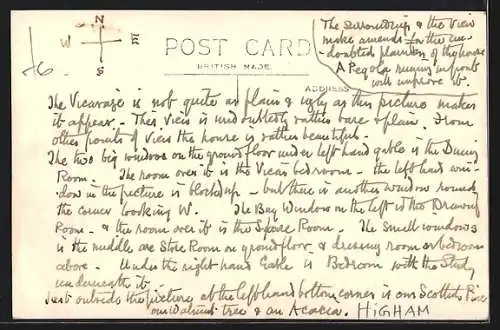 N
W E
S
/6.
POST CARD
BRITISH MADE
ADDRESS
The Surroundings & the View
make amends for the un-
doubted plainness of the house
A Pergola running in front
will improve it
The Vicarage is not quite as plain & ugly as this picture makes
it appear. This view is undoubtedly rather bare & plain. From
other points of view the house is rather beautiful.
The two big windows on the ground floor under left hand gable is the Dining
Room. The room over it is the Vicar's bedroom - the left hand win-
dow in the picture is blocked up - but there is another window round
the corner looking W. The Bay Window on the left is the Drawing
Room - & the room over it is the Spare Room. The small windows
in the middle are Store Room on ground floor & dressing room or bedroom
above. Under the right hand Gable is Bedroom with the Study
underneath it.
Just outside the picture at the left hand bottom corner is our Scottish
our Walnut tree & an Acacia. HIGHAM